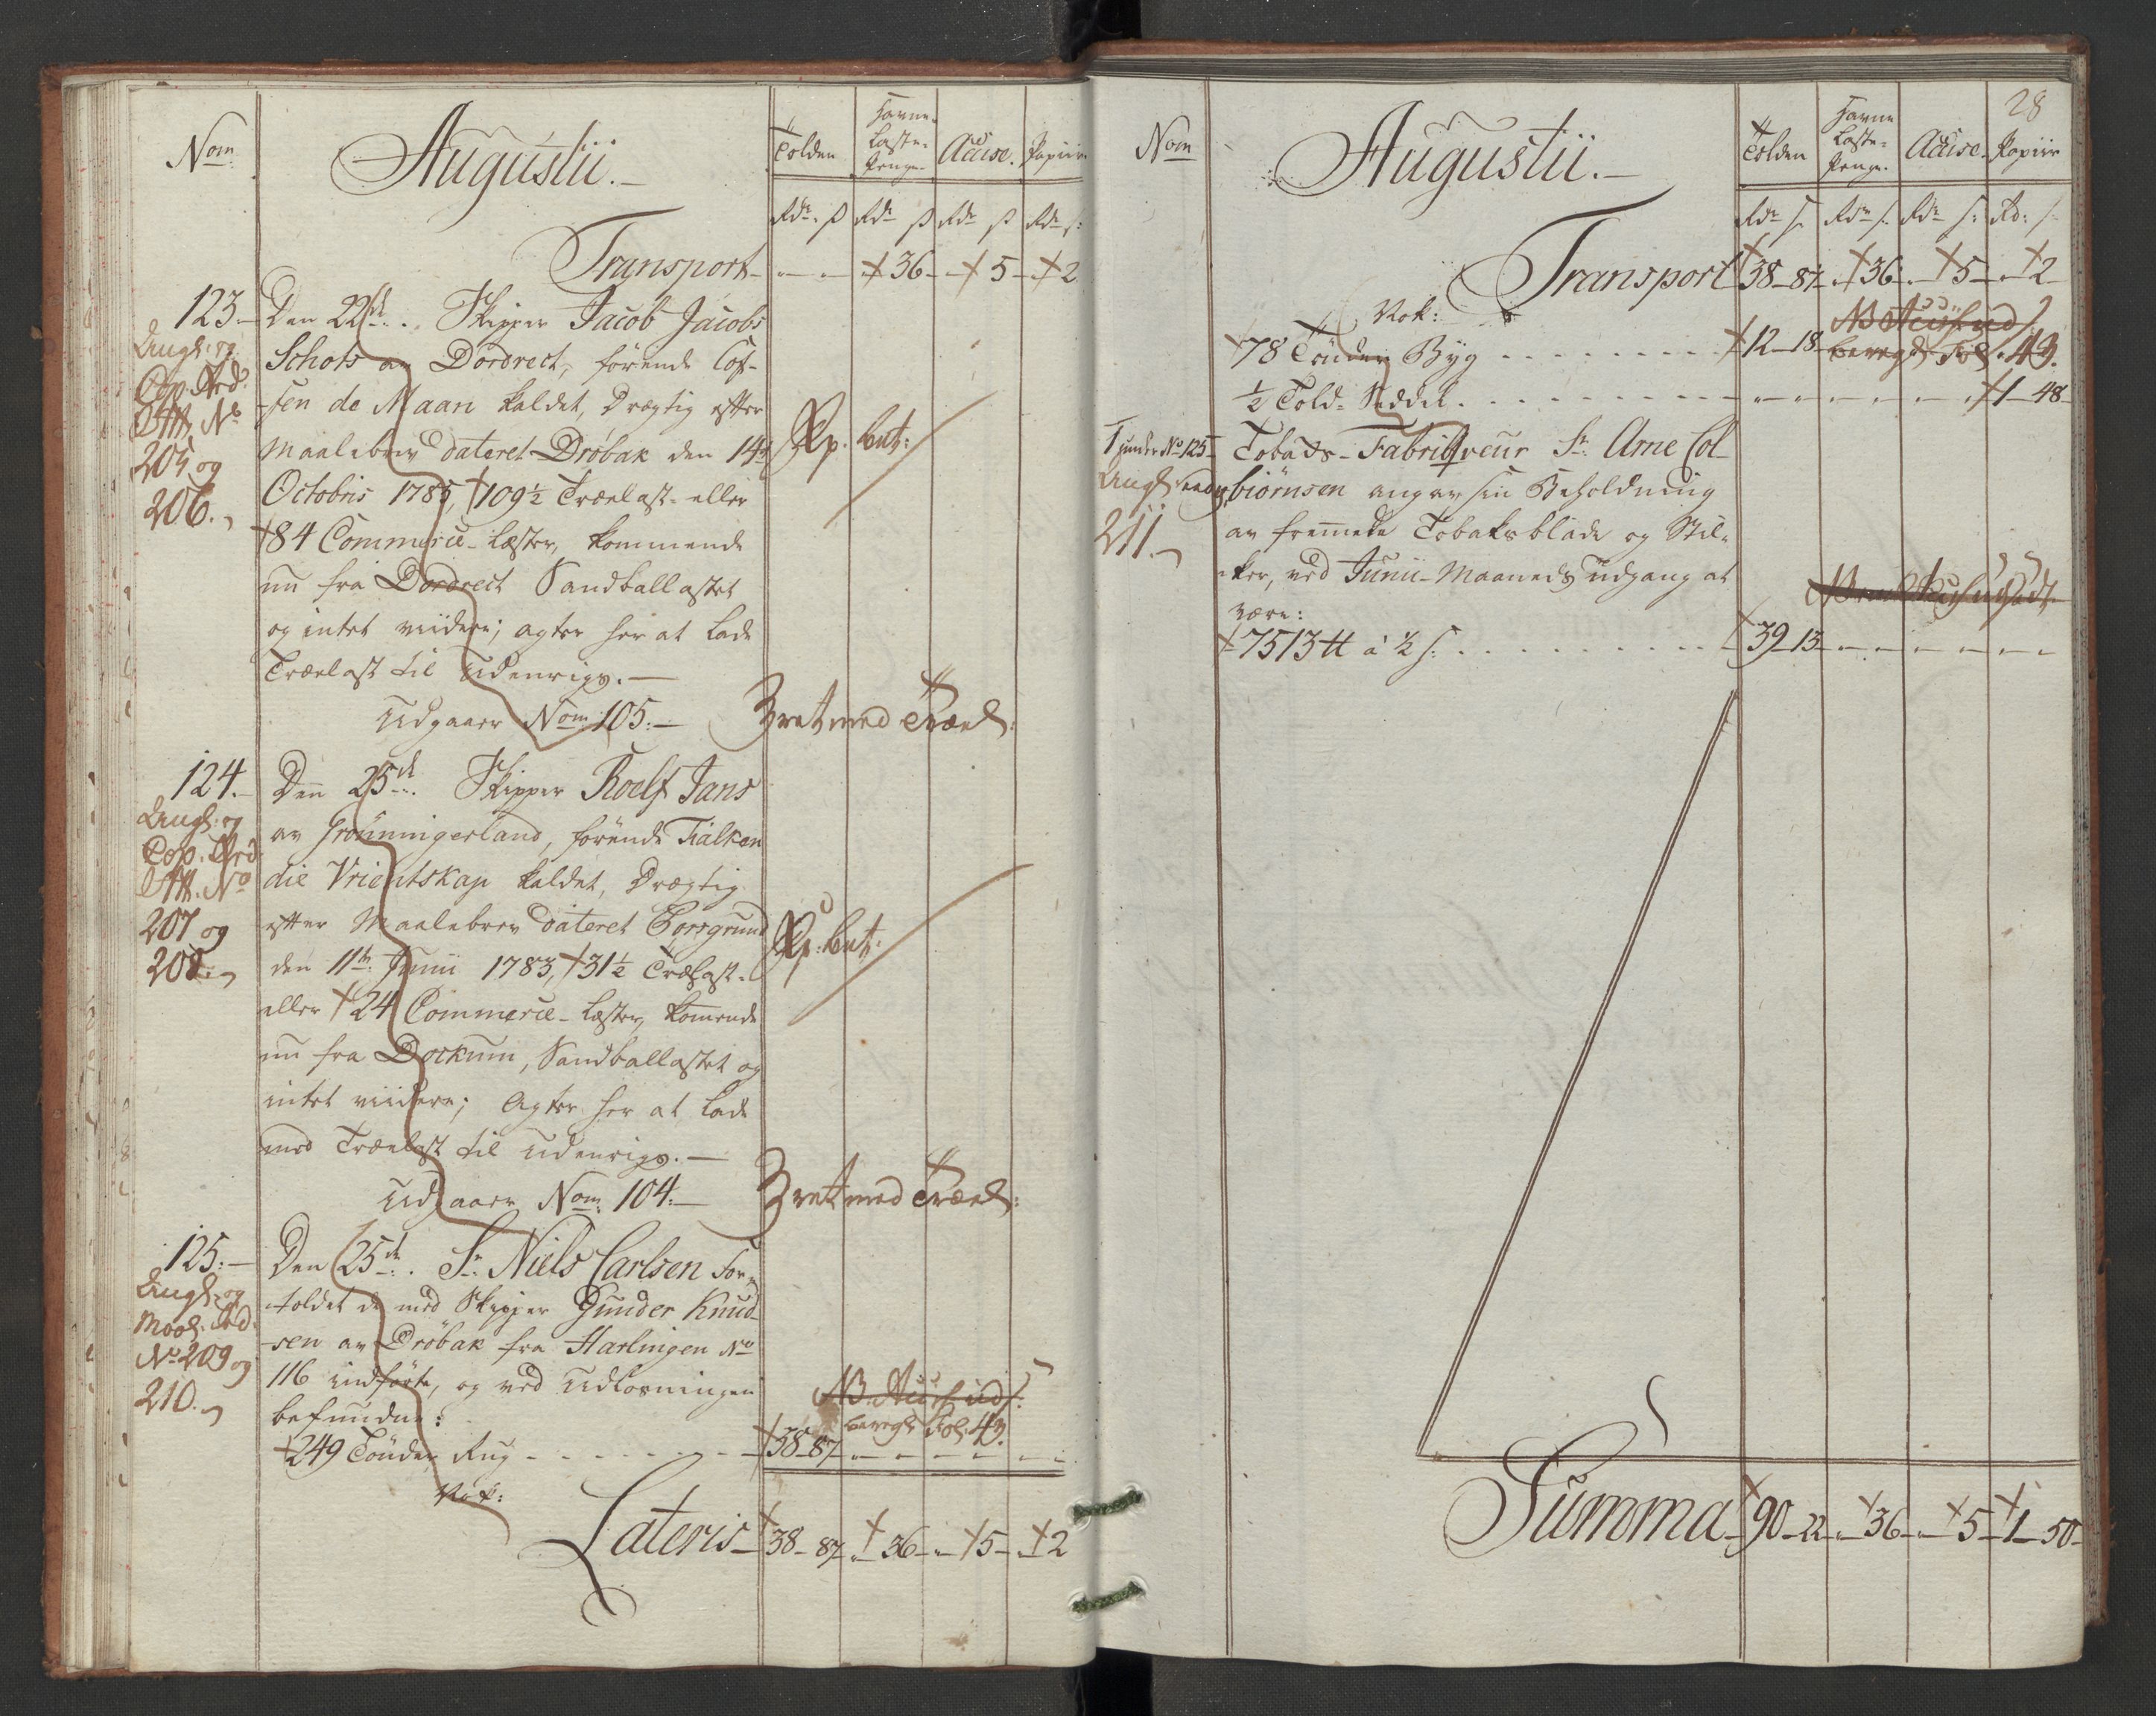 Nom.
Augustii.
Tolden
Havne-
Laste-
Penge.
Accise.
Papiir
Rdr. ß Rdr ß Rdr ß Rdr ß
Transport - - 36 - 5 - 2
123. Den 22de. Skipper Jacob Jacobs
Schots av Dordrect, förende Cof-
-fen de Maan kaldet, Drægtig efter
Maalebrev dateret Dröbak den 14de
Octobris 1785, 109½ Trælast- eller
84 Commerce-Læster, kommende
nu fra Dordrect Sandballastet
og intet viidere; agter her at lade
Trælast til Udenrigs.
Udgaaer Nom. 105.
Angl: og
205 og
206.
124. Den 25de. Skipper Roelf Jans
av Grönningerland, förende Tialken
die Vrientskap kaldet, Drægtig
efter Maalebrev dateret Porsgrund
den 11te Junii 1783, 31½ Trælast-
eller 24 Commerce-Læster, komende
nu fra Dockum, Sandballastet og
intet viidere; Agter her at lade
med Trælast til Udenrigs.
Udgaaer Nom. 104.
Angl: og
207 og
208.
125. Den 25de. Sr. Niels Carlsen For-
-toldet de med Skipper Gunder Knud-
-sen av Dröbak fra Harlingen No
116 indförte, og ved Udlosningen
befundne:
249 Tönder Rug - - - 38 - 87
Vok:
Angl: og
No 209 og
210.
Fol: 43.
Lateris 38 - 87 - 36 - 5 - 2
28
Nom
Augustii.
Tolden
Havne
Laste-
Penge.
Accise.
Papiir
Rdr ß. Rdr ß. Rdr ß. Rd: ß.
Transport 38 - 87 - 36 - 5 - 2
Vok:
78 Tönder Byg - - - 12 - 18
Fol. 43.
½ Told-Seddel - - - 1 - 48
under No 125 Tobaks-Fabriqveur Sr. Arne Col-
biörnsen angav sin Beholdning
av fremmede Tobaksblade og Stil-
-ker, ved Junii-Maaneds Udgang at
være:
7513 ℔ à ½ ß. - - - 39 - 13
211.
Summa 90 - 22 - 36 - 5 - 1 - 50